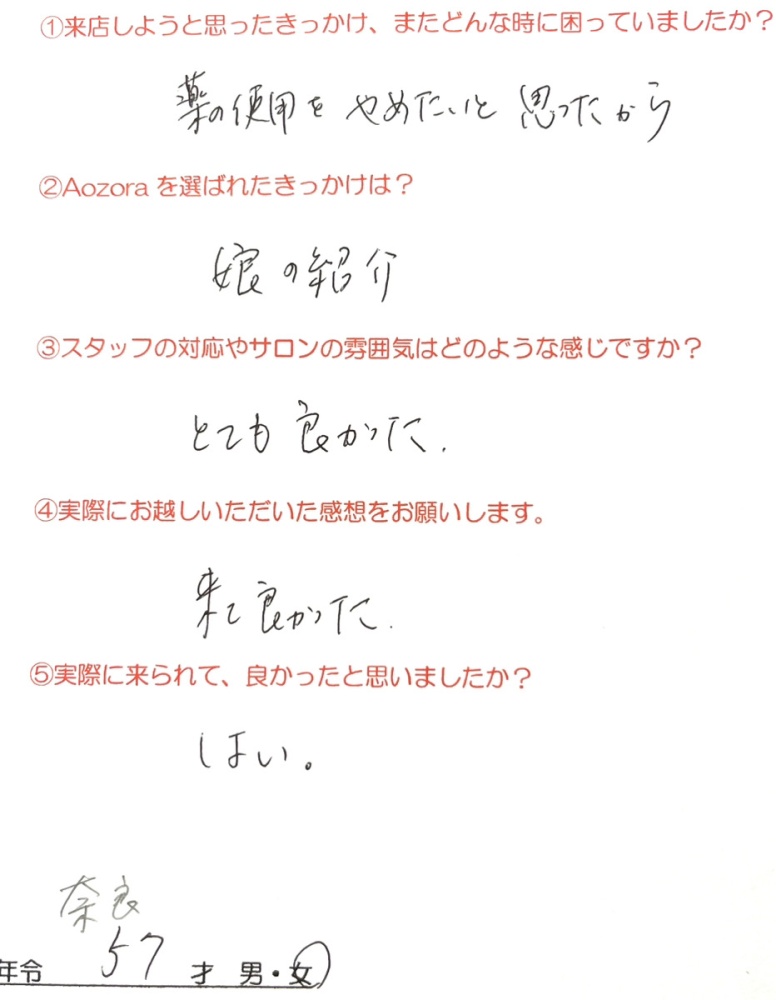 ①来店しようと思ったきっかけ、またどんな時に困っていましたか？
薬の使用を やめたいと 思ったから
②Aozora を選ばれたきっかけは？
娘の紹介
③スタッフの対応やサロンの雰囲気はどのような感じですか？
とても 良かった.
④実際にお越しいただいた感想をお願いします。
来て良かった.
⑤実際に来られて、良かったと思いましたか？
はい。
奈良
年令 57 才 男・女